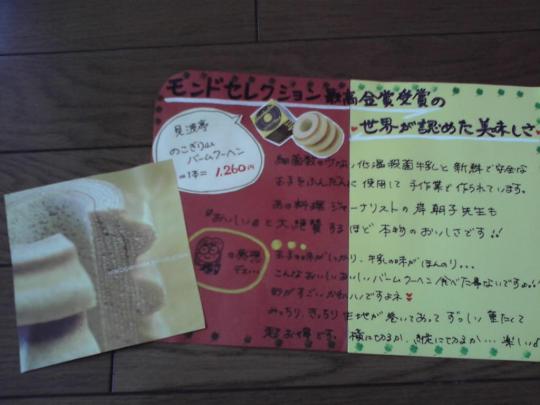 モンドセレクション最高金賞受賞の
世界が認めた美味しさ
見波亭
のこぎり山
バームクーヘン
1本= 1,260円
細菌数の少ない低温殺菌牛乳と新鮮で安全な
玉子をふんだんに使用して手作業で作られています。
あの料理ジャーナリストの岸朝子先生も
『おいしい』と大絶賛するほど本物のおいしさです!!
玉子の味がしっかり、牛乳の味がほんのり...
こんなおいしいバームクーヘン食べた事ないですよ
形がすごいかわいいですよネ
みっちり、ぎっちり生地が巻いてあってずっしり重たくて
超お得です。横に切るか、縦に切るか...楽しい♪